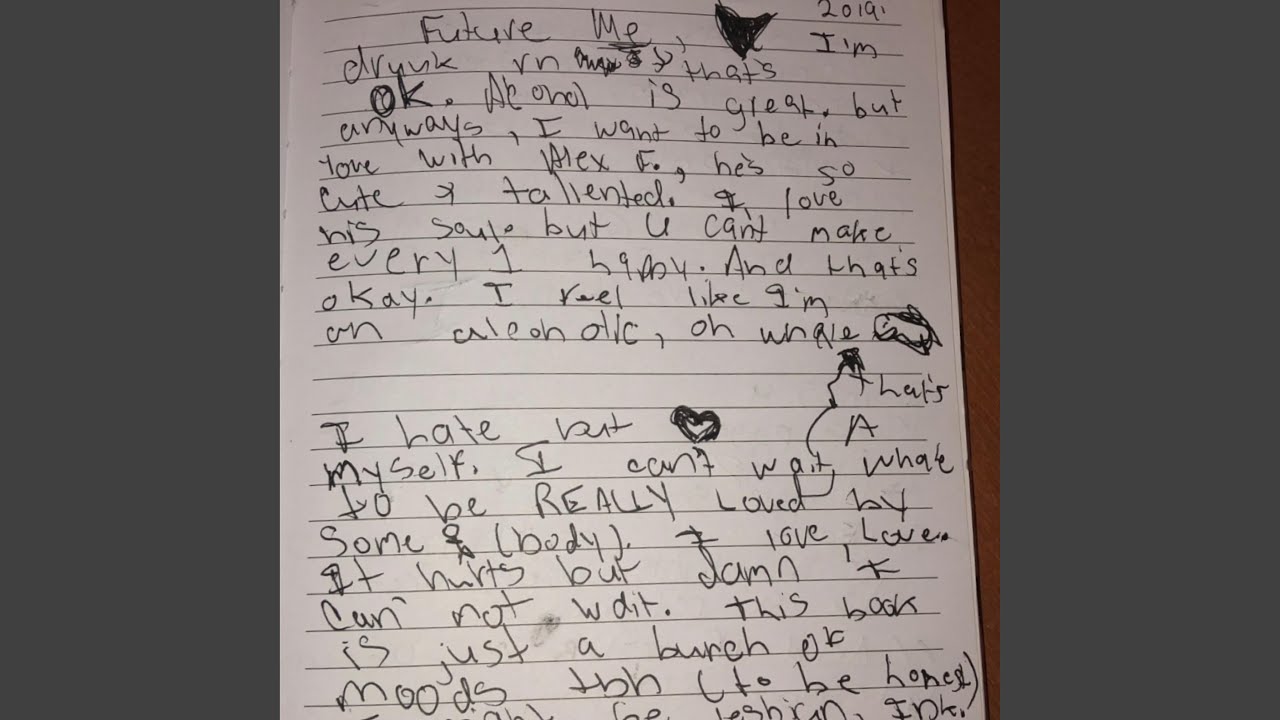 2019.
Future Me, I'm
drunk rn that's
OK. Alcohol is great. but
anyways, I want to be in
love with Alex F., he's so
cute & talliented. I love
his soul. but U can't make
every 1 happy. And that's
okay. I feel like I'm
an alcoholic, oh whale
that's
I hate but A
myself. I can't wait, whale
to be REALLY Loved by
Some (body). I love, Love.
It hurts but damn I
can not wait. this book
is just a bunch of
moods tbh (to be honest)
be lesbian, Idk.